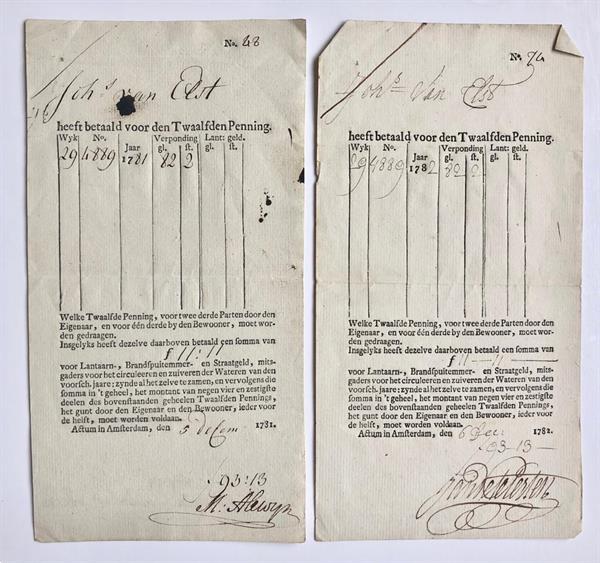 No. 48
Joh.s van Elst
heeft betaald voor den Twaalfden Penning.
Wyk No. Jaar Verponding Lant: geld.
gl. ſt. gl. ſt.
29 4889 1781 82 2
Welke Twaalfde Penning, voor twee derde Parten door den
Eigenaar, en voor één derde by den Bewooner, moet wor-
den gedraagen.
Inſgelyks heeft dezelve daarboven betaald een ſomma van
f 11:11
voor Lantaarn-, Brandſpuitemmer- en Straatgeld, mits-
gaders voor het circuleeren en zuiveren der Wateren van den
voorſch. jaare: zynde al het zelve te zamen, en vervolgens die
ſomma in 't geheel, het montant van negen vier en zestigſte
deelen des bovenſtaanden geheelen Twaalfden Pennings,
het gunt door den Eigenaar en den Bewooner, ieder voor
de helft, moet worden voldaan.
Actum in Amſterdam, den 5 decem 1781.
93:13
M: Alewyn
No. 74
Joh.s Van Elst
heeft betaald voor den Twaalfden Penning.
Wyk No. Jaar Verponding Lant: geld.
gl. ſt. gl. ſt.
29 4889 1782
Welke Twaalfde Penning, voor twee derde Parten door den
Eigenaar, en voor één derde by den Bewooner, moet wor-
den gedraagen.
Inſgelyks heeft dezelve daarboven betaald een ſomma van
f 11 — 11 —
voor Lantaarn-, Brandſpuitemmer- en Straatgeld, mits-
gaders voor het circuleeren en zuiveren der Wateren van den
voorſch. jaare: zynde al het zelve te zamen, en vervolgens die
ſomma in 't geheel, het montant van negen vier en zestigſte
deelen des bovenſtaanden geheelen Twaalfden Pennings,
het gunt door den Eigenaar en den Bewooner, ieder voor
de helft, moet worden voldaan.
Actum in Amſterdam, den 6 Dec: 1782.
93-13-